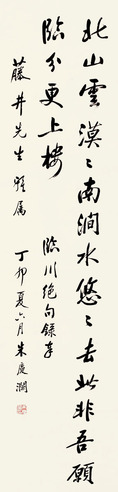 北山雲漠々南澗水悠々去此非吾願
臨分更上樓　臨川絕句錄奉
藤井先生雅屬　丁卯夏六月朱慶瀾